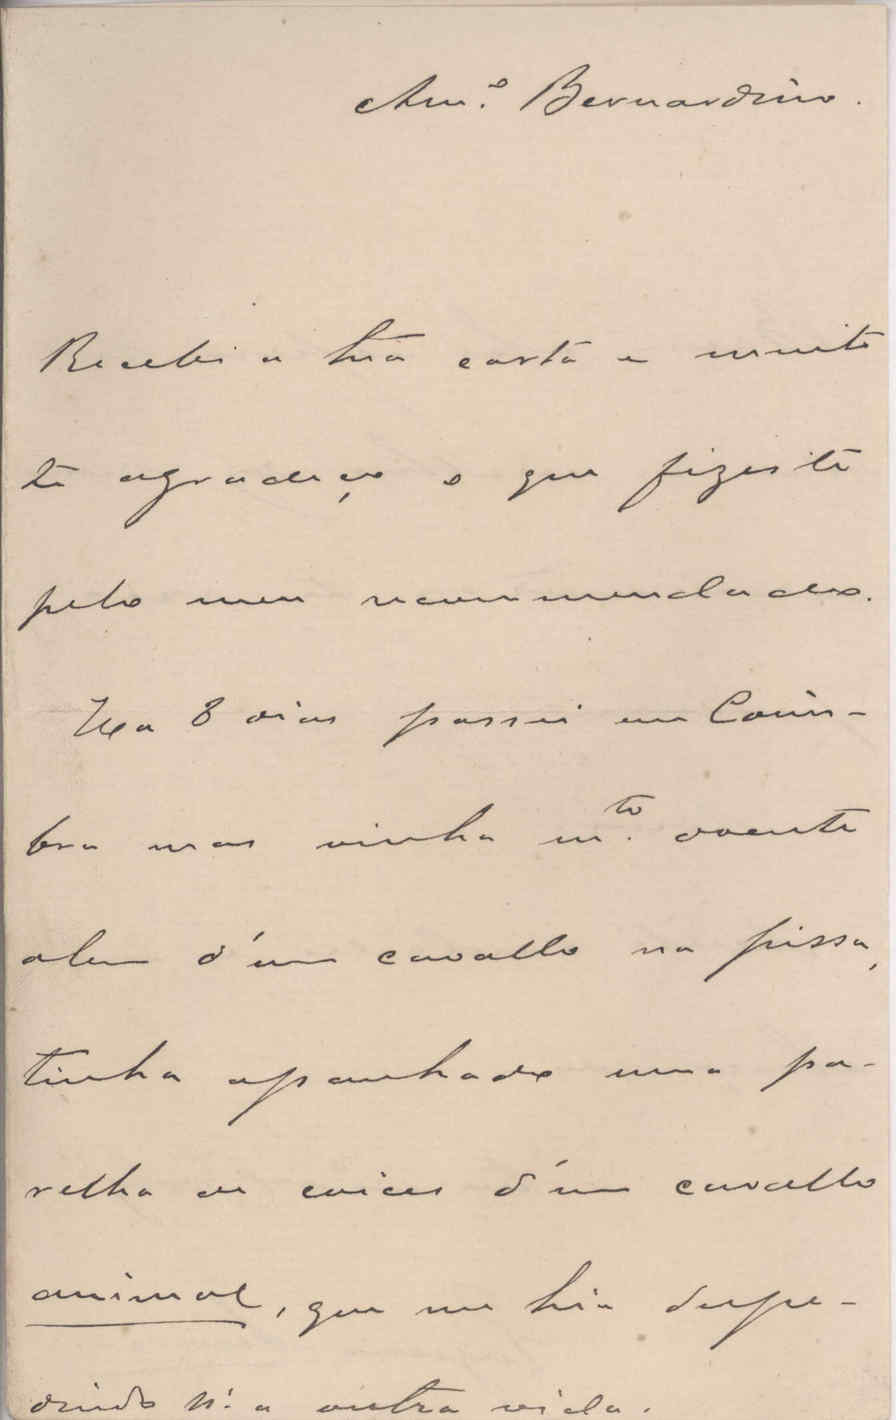 Am.º Bernardino.
Recebi a tua carta e muito
te agradeço o que fizeste
pelo meu recommendado.
Ha 8 dias passei em Coim-
bra mas vinha m.to doente
alem d'um cavallo na pissa,
tinha apanhado uma pa-
relha de coices d'um cavallo
animal, que me hia despe-
dindo p.ª a outra vida.